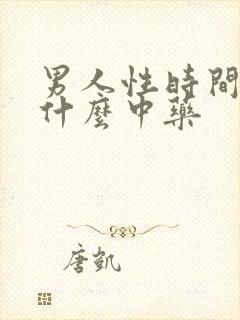 男人性時間
什麼中藥
唐凱